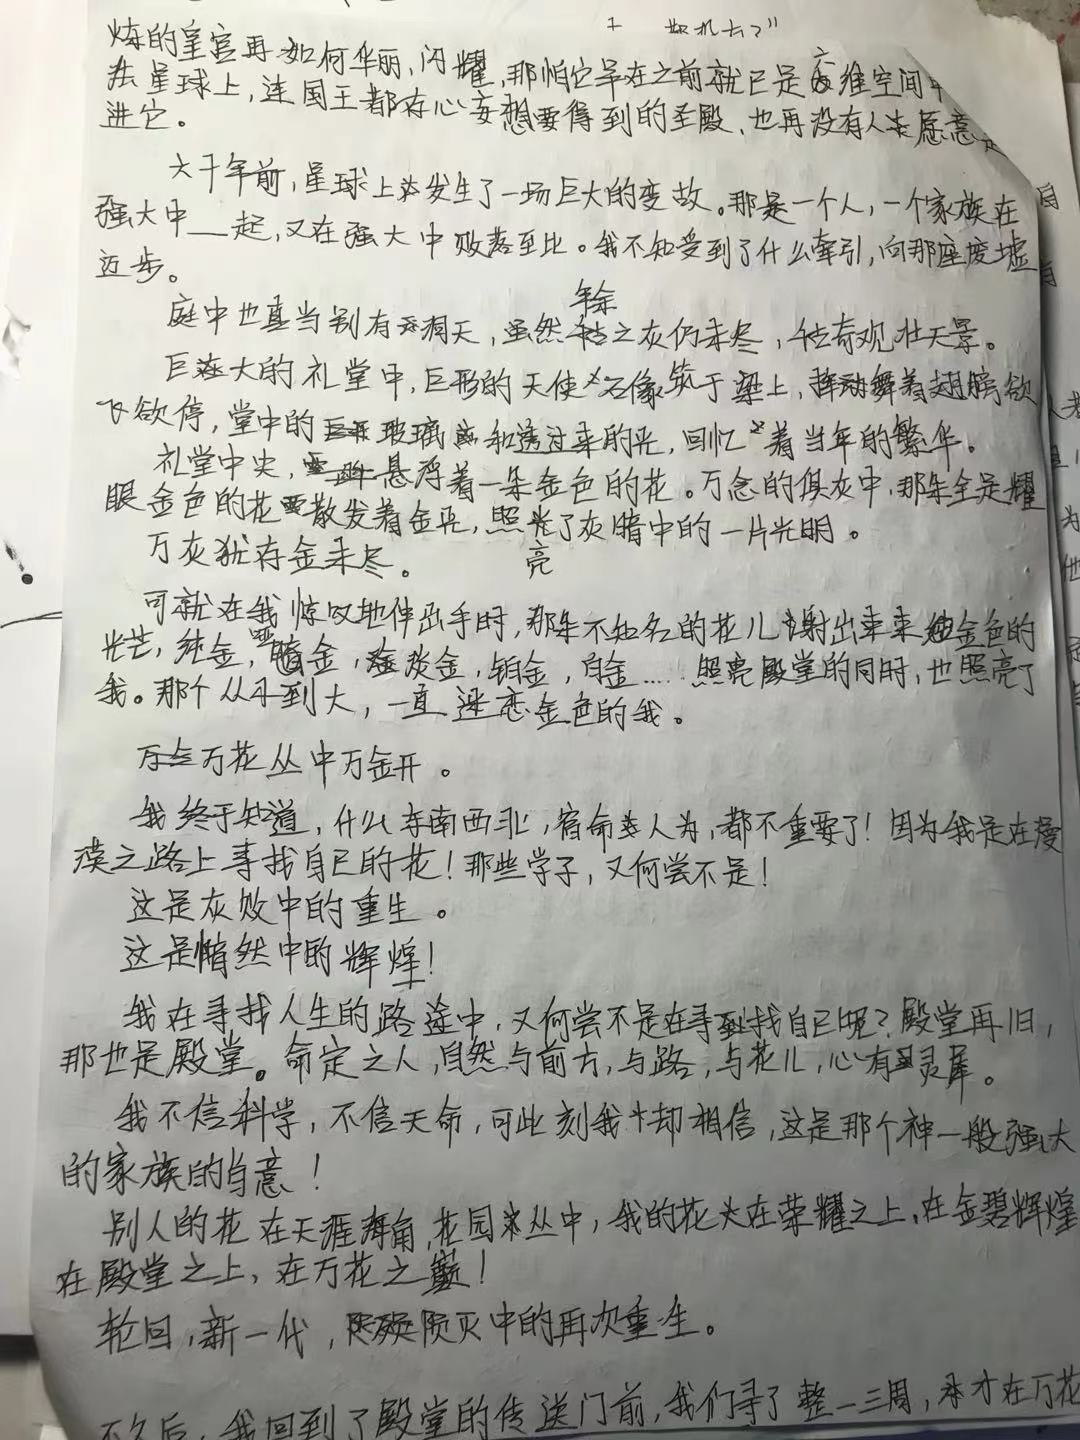 炼的皇宫再如何华丽，闪耀，那怕它早在之前就已是高维空间
法星球上，连国王都有心妄想要得到的圣殿，也再没有人愿意走
进它。
六千年前，星球上发生了一场巨大的变故。那是一个人，一个家族在
强大中__起，又在强大中败落至比。我不知受到了什么牵引，向那座废墟
迈步。
庭中也真当别有洞天，虽然年余之灰仍未尽，奇观壮天景。
巨大的礼堂中，巨形的天使石像筑于梁上，舞着翅膀欲
飞欲停，堂中的玻璃和透过来的光，回忆着当年的繁华。
礼堂中央，悬浮着一朵金色的花。万念的俱灰中，那朵全是耀
眼金色的花散发着金光，照亮了灰暗中的一片光明。
万灰犹存金未尽。
可就在我惊叹地伸出手时，那朵不知名的花儿射出束束金色的
光芒，纯金，暗金，淡金，铂金，白金……照亮殿堂的同时，也照亮了
我。那个从小到大，一直迷恋金色的我。
万花丛中万金开。
我终于知道，什么东南西北，宿命人为，都不重要了！因为我是在漫
漠之路上寻找自己的花！那些学子，又何尝不是！
这是灰败中的重生。
这是惰然中的辉煌！
我在寻找人生的路途中，又何尝不是在寻找自己呢？殿堂再旧，
那也是殿堂。命定之人，自然与前方，与路，与花儿，心有灵犀。
我不信科学，不信天命，可此刻我却相信，这是那个神一般强大
的家族的旨意！
别人的花在天涯海角，花园丛中，我的花失在荣耀之上，在金碧辉煌
在殿堂之上，在万花之巅！
轮回，新一代，陨灭中的再次重生。
不久后，我回到了殿堂的传送门前，我们寻了整一三周，才在万花